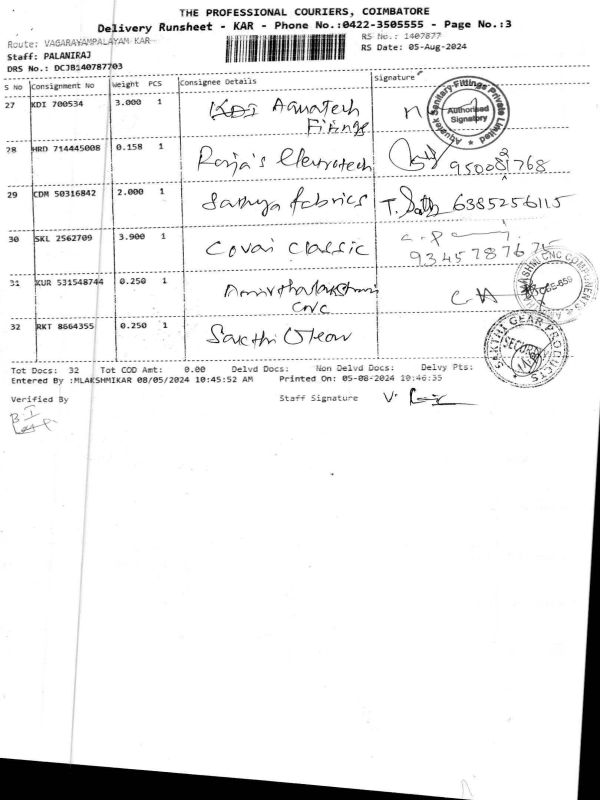 THE PROFESSIONAL COURIERS, COIMBATORE
Delivery Runsheet - KAR - Phone No.:0422-3505555 - Page No.:3
Route: VAGARAYAMPALAYAM KAR
RS No.: 1407877
Staff: PALANIRAJ
RS Date: 05-Aug-2024
DRS No.: DCJB140787703
S No Consignment No Weight PCS Consignee Details Signature
27 KDI 700534 3.000 1 KDI Aquatech
Fittings
Aquatek Sanitary Fittings Private Limited
Authorised
Signatory
28 HRD 714445008 0.158 1 Raja's Electrotech
29 CDM 50316842 2.000 1 Sathya fabrics T. 6385256115
30 SKL 2562709 3.900 1 Covai Classic
31 KUR 531548744 0.250 1 Amirthalakshmi
CNC
CNC COMPONENTS
32 RKT 8664355 0.250 1 Sakthi Gear
SAKTHI GEAR PRODUCTS
SECURITY
Tot Docs: 32 Tot COD Amt: 0.00 Delvd Docs: Non Delvd Docs: Delvy Pts:
Entered By :MLAKSHMIKAR 08/05/2024 10:45:52 AM Printed On: 05-08-2024 10:46:35
Verified By Staff Signature